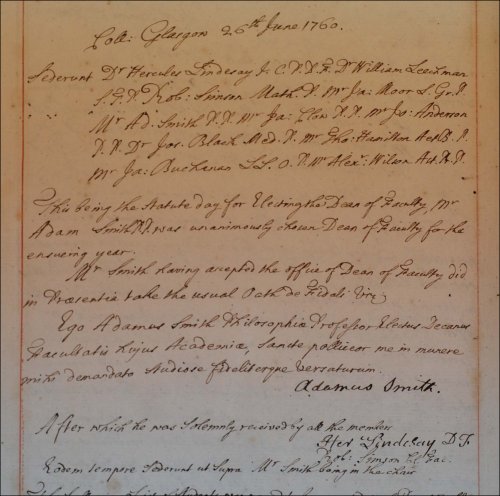 Coll: Glasgow 26th June 1760.
Sederunt Dr Hercules Lindesay J. C. P. D. F. Dr William Leechman
S. T. P. Rob: Simson Math. P. Mr Ja: Moor L. Gr. P.
Mr Ad. Smith P. P. Mr Ja: Clow P. P. Mr Jo: Anderson
P. P. Dr Jos. Black Med. P. Mr Tho: Hamilton Anat. B. P.
Mr Ja: Buchanan L. L. O. P. Mr Alexr: Wilson Ast. P. P.
This being the Statute day for Electing the Dean of Faculty, Mr
Adam Smith P.P. was unanimously chosen Dean of Faculty for the
ensueing year.
Mr Smith having accepted the office of Dean of Faculty did
in Præsentia take the usual Oath de Fideli Viz
Ego Adamus Smith Philosophiæ Professor Electus Decanus
Facultatis hujus Academiæ, Sancte polliceor me in munere
mihi demandato Studiose fideliterque versaturum.
Adamus Smith.
After which he was Solemnly received by all the members
Her: Lindesay D F.
Rob: Simson Cl. Fac.
Eodem tempore Sederunt ut Supra Mr Smith being in the chair